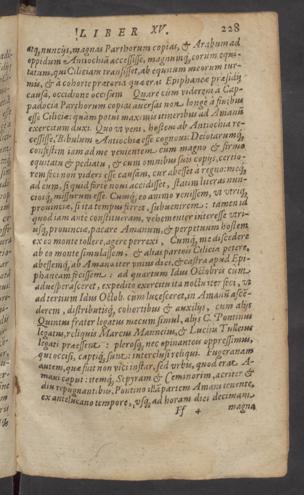 LIBER XV. 228
atq, nuncijs, magnas Parthorum copias, & Arabum ad
oppidum Antiochiā accessisse, magnumq, eorum equi-
tatum, qui Ciliciam transisset, ab equitum meorum tur-
mis, & à cohorte prætoria quæ erat Epiphaneæ præsidij
causâ, occidione occisum. Quare cùm viderem à Cap-
padocia Parthorum copias auersas non longè à finibus
esse Ciliciæ: quàm potui maximis itineribus ad Amanū
exercitum duxi. Quo vt veni, hostem ab Antiochia re-
cessisse, Bibulum Antiochiæ esse cognoui: Deiotarumq,
confestim iam ad me venientem, cum magno & firmo
equitatu & peditatu, & cum omnibus suis copijs, certio-
rem feci non videri esse causam, cur abesset à regno: meq,
ad eum, si quid fortè noui accidisset, statim literas nun-
ciosq, missurum esse. Cumq, eo animo venissem, vt vtriq,
prouinciæ, si ita tempus ferret, subuenirem: tamen id
quod iam ante constitueram, vehementer interesse vtri-
usq, prouinciæ, pacare Amanum, & perpetuum hostem
ex eo monte tollere, agere perrexi. Cumq, me discedere
ab eo monte simulassem, & alias parteis Ciliciæ petere,
abessemq, ab Amano iter vnius diei, & castra apud Epi-
phaneam fecissem: ad quartum Idus Octobris cum
aduesperasceret, expedito exercitu ita noctu iter feci, vt
ad tertium Idus Octob. cum lucesceret, in Amanū ascē-
derem, distributisq, cohortibus & auxilijs, cum alijs
Quintus frater legatus mecum simul, alijs C. Pontinus
legatus, reliquis Marcus Manneius, & Lucius Tulleius
legati præessent: plerosq, nec opinanteis oppressimus,
qui occisi, captiq, sunt: interclusi reliqui. Fugeranam
autem, quæ fuit non vici instar, sed vrbis, quod erat A-
mani caput: itemq, Sepyram & Ceminorim, acriter &
diu repugnantibus, Pontino illā partem Amani tenente,
ex antelucano tempore, vsq, ad horam diei decimam
Ff 4 magna